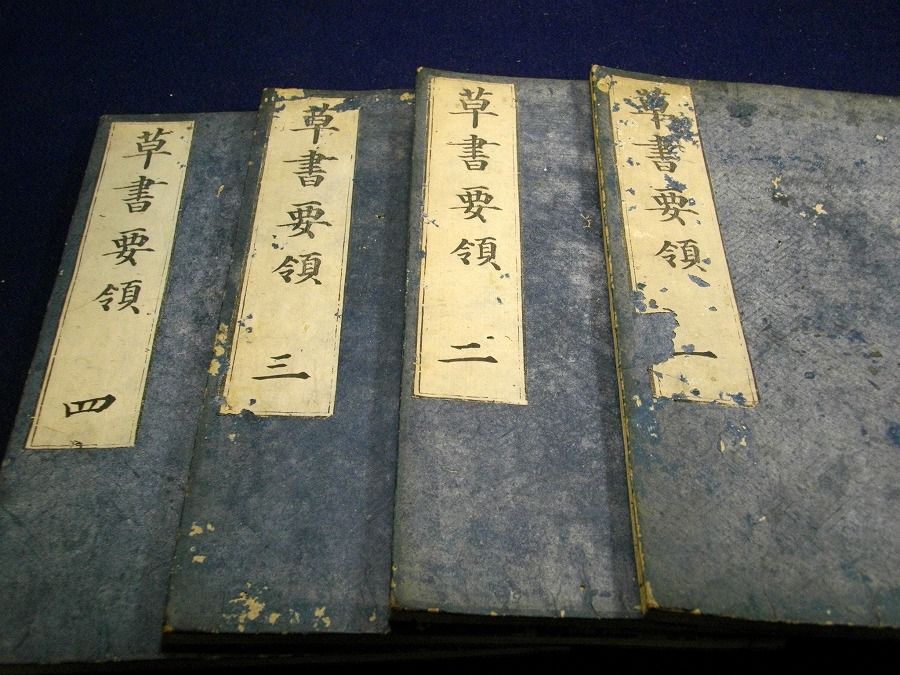 草書要領 一
草書要領 二
草書要領 三
草書要領 四